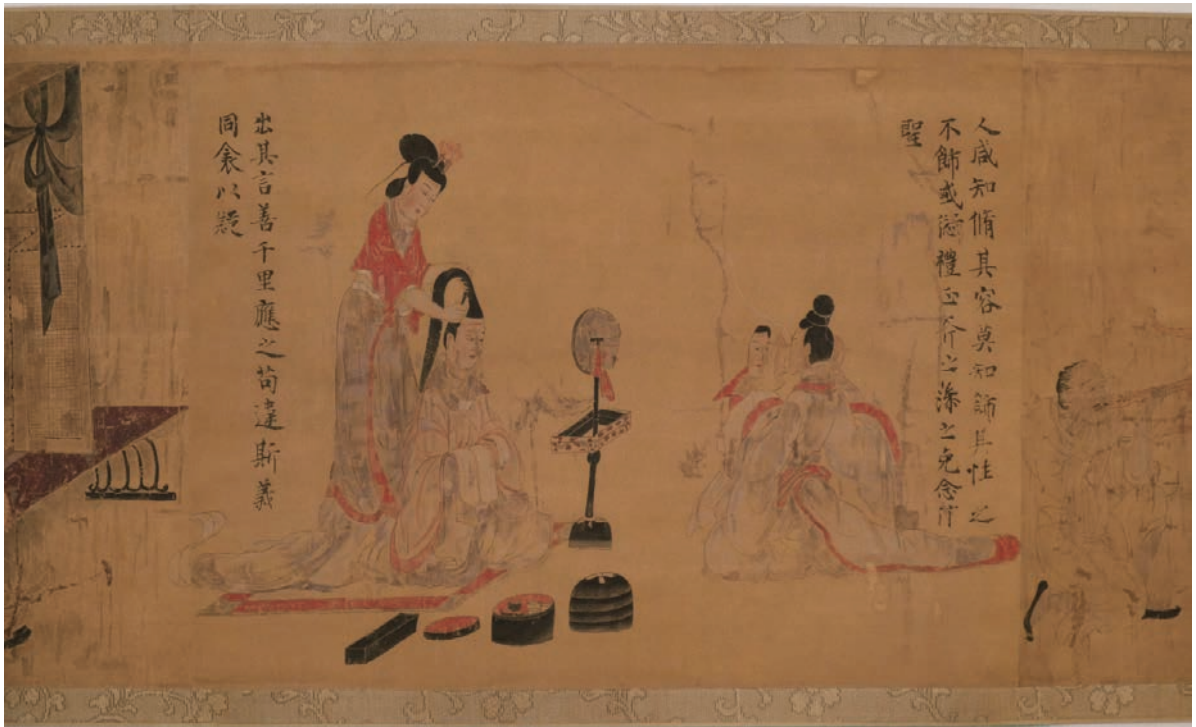 人咸知脩其容莫知飾其性之
不飾或愆禮正斧之藻之克念作
聖
出其言善千里應之苟違斯義
同衾以疑